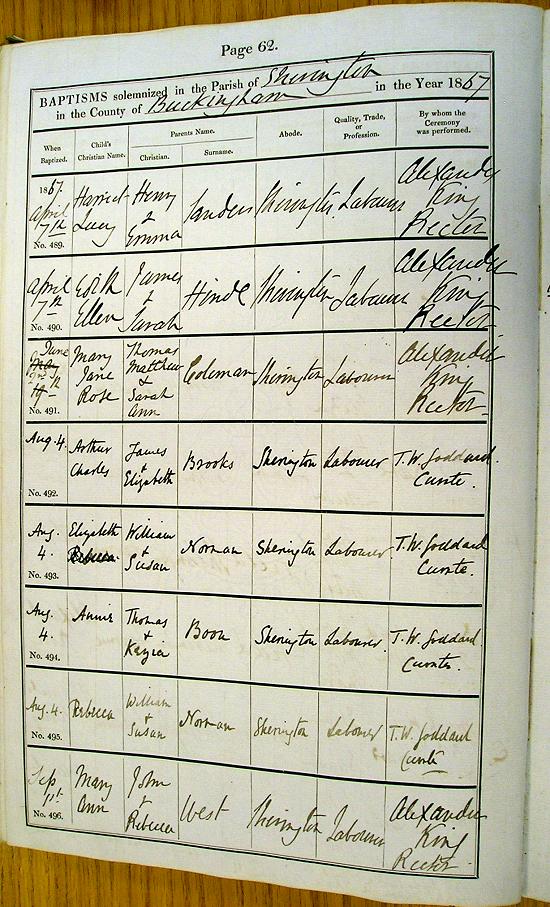 Page 62.
BAPTISMS solemnized in the Parish of Sherington
in the County of Buckingham in the Year 1867
When Baptized. Child's Christian Name. Parents Name. Christian. Surname. Abode. Quality, Trade, or Profession. By whom the Ceremony was performed.
1867. April 7th No. 489. Harriet Lucy Henry & Emma Sanders Sherington Labourer Alexander King Rector
April 7th No. 490. Edith Ellen James & Sarah Hinde Sherington Labourer Alexander King Rector
June No. 491. Mary Jane Rose Thomas Matthew & Sarah Ann Coleman Sherington Labourer Alexander King Rector
Aug. 4. No. 492. Arthur Charles James & Elizabeth Brooks Sherington Labourer T. W. Goddard Curate.
Aug. 4. No. 493. Elizabeth Rebecca William & Susan Norman Sherington Labourer T. W. Goddard Curate.
Aug. 4. No. 494. Annie Thomas & Kezia Boon Sherington Labourer T. W. Goddard Curate.
Aug. 4. No. 495. Rebecca William & Susan Norman Sherington Labourer T. W. Goddard Curate
Sep 1st No. 496. Mary Ann John & Rebecca West Sherington Labourer Alexander King Rector